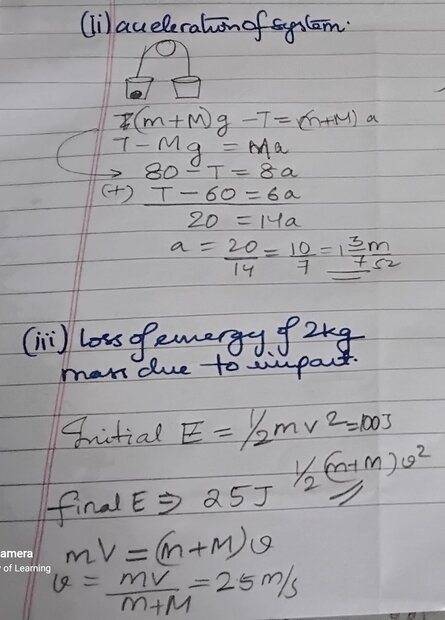 (Ii) aueleration of system.
(m+M)g - T = (m+M) a
T - Mg = Ma
80 - T = 8a
(+) T - 60 = 6a
20 = 14a
a = 20/14 = 10/7 = 1 3/7 m/s2
(iii) loss of energy of 2kg
mass due to impact.
Initial E = 1/2 m v2 = 100J
final E ⇒ 25J 1/2 (m+M) v2
mV = (m+M)v
v = mV/m+M = 25 m/s
amera
of Learning